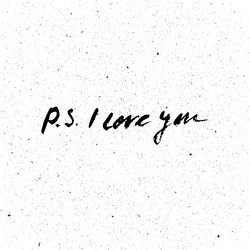 P.S. I love you